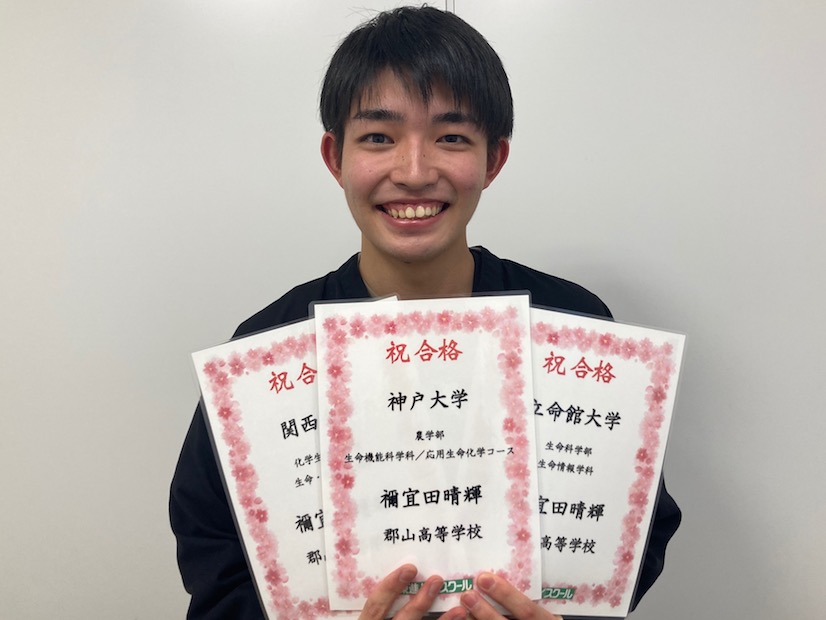 祝合格
関西
化学生
生命・
禰宜
郡山
祝合格
神戸大学
農学部
生命機能科学科／応用生命化学コース
禰宜田晴輝
郡山高等学校
スクール
祝合格
立命館大学
生命科学部
生命情報学科
宜田晴輝
高等学校
スクール